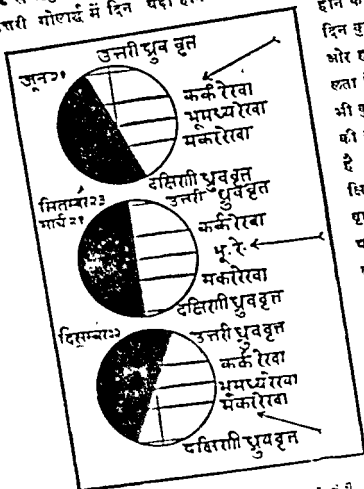 त्तरी गोलार्द्ध में दिन
दिन
ओर
भी
की
है
उत्तरी ध्रुव वृत्त
जून २१
कर्क रेखा
भूमध्य रेखा
मकर रेखा
दक्षिणी ध्रुव वृत्त
उत्तरी ध्रुव वृत्त
सितम्बर २३
मार्च २१
कर्क रेखा
भू. रे.
मकर रेखा
दक्षिणी ध्रुव वृत्त
दिसम्बर २२
उत्तरी ध्रुव वृत्त
कर्क रेखा
भूमध्य रेखा
मकर रेखा
दक्षिणी ध्रुव वृत्त